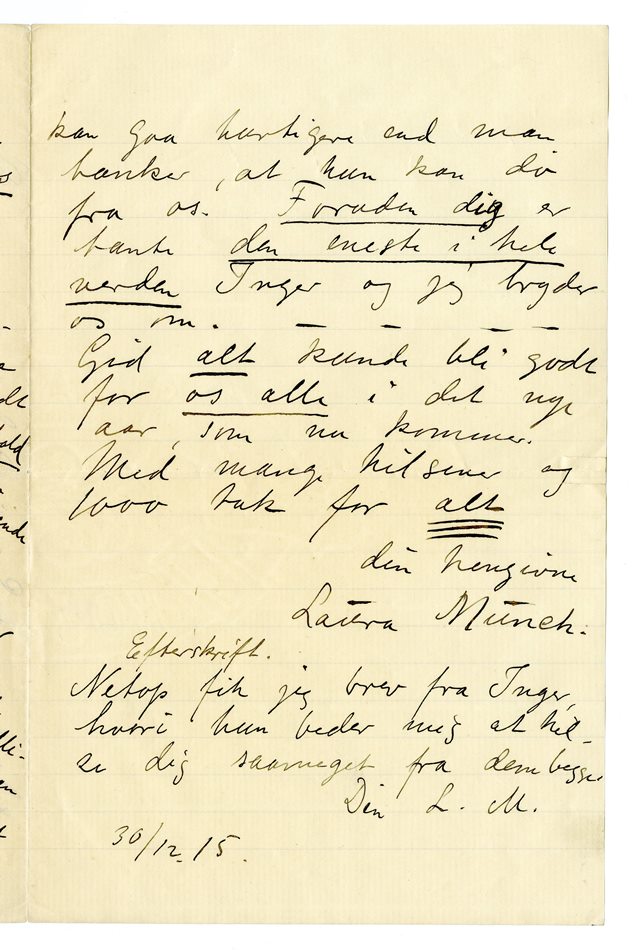 kan gaa hurtigere end man
tænker, at hun kan dø
fra os. Foruden dig er
tante den eneste i hele
verden Inger og jeg bryder
os om. — — — —
Gid alt kunde bli godt
for os alle i det nye
aar, som nu kommer.
Med mange hilsener og
1000 tak for alt
din hengivne
Laura Munch.
Efterskrift.
Netop fik jeg brev fra Inger,
hvori hun beder mig at hil-
se dig saameget fra dem begge
Din L. M.
30/12. 15.